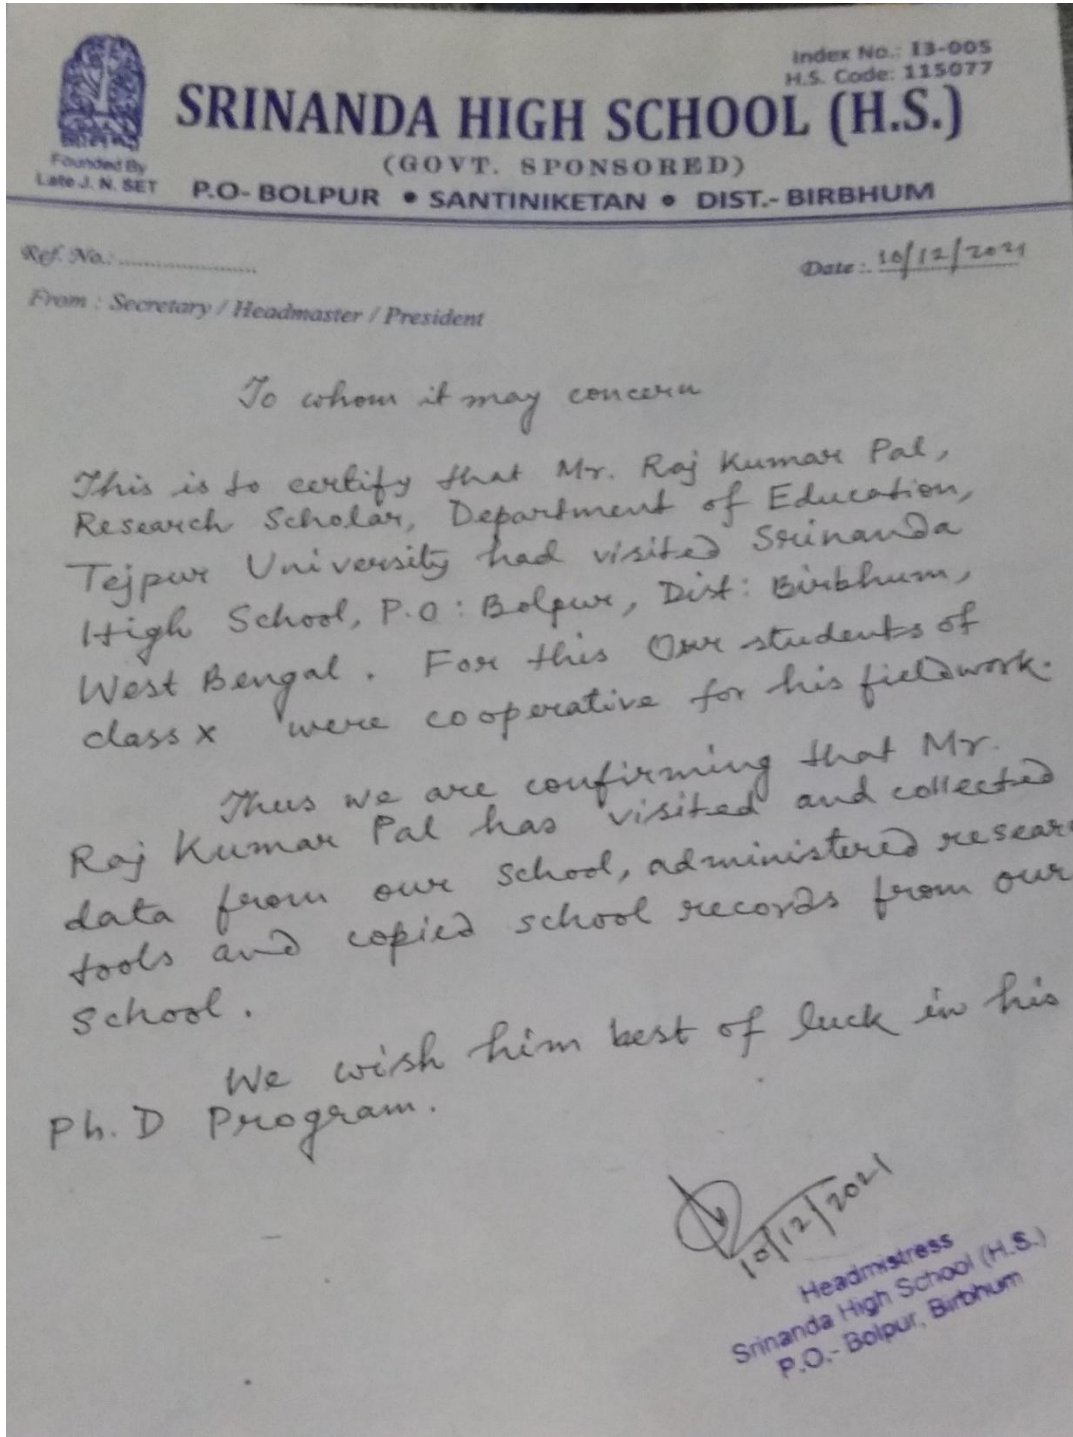 Index No.: I3-005
H.S. Code: 115077
SRINANDA HIGH SCHOOL (H.S.)
(GOVT. SPONSORED)
Founded By
Late J. N. SET
P.O- BOLPUR • SANTINIKETAN • DIST.- BIRBHUM
Ref. No.: ........................
Date : 10/12/2021
From : Secretary / Headmaster / President
To whom it may concern
This is to certify that Mr. Raj Kumar Pal,
Research Scholar, Department of Education,
Tejpur University had visited Srinanda
High School, P.O : Bolpur, Dist : Birbhum,
West Bengal. For this Our students of
class x were cooperative for his fieldwork.
Thus we are confirming that Mr.
Raj Kumar Pal has visited and collected
data from our school, administered resear
tools and copied school records from our
School.
We wish him best of luck in his
Ph. D Program.
10/12/2021
Headmistress
Srinanda High School (H.S.)
P.O.- Bolpur, Birbhum